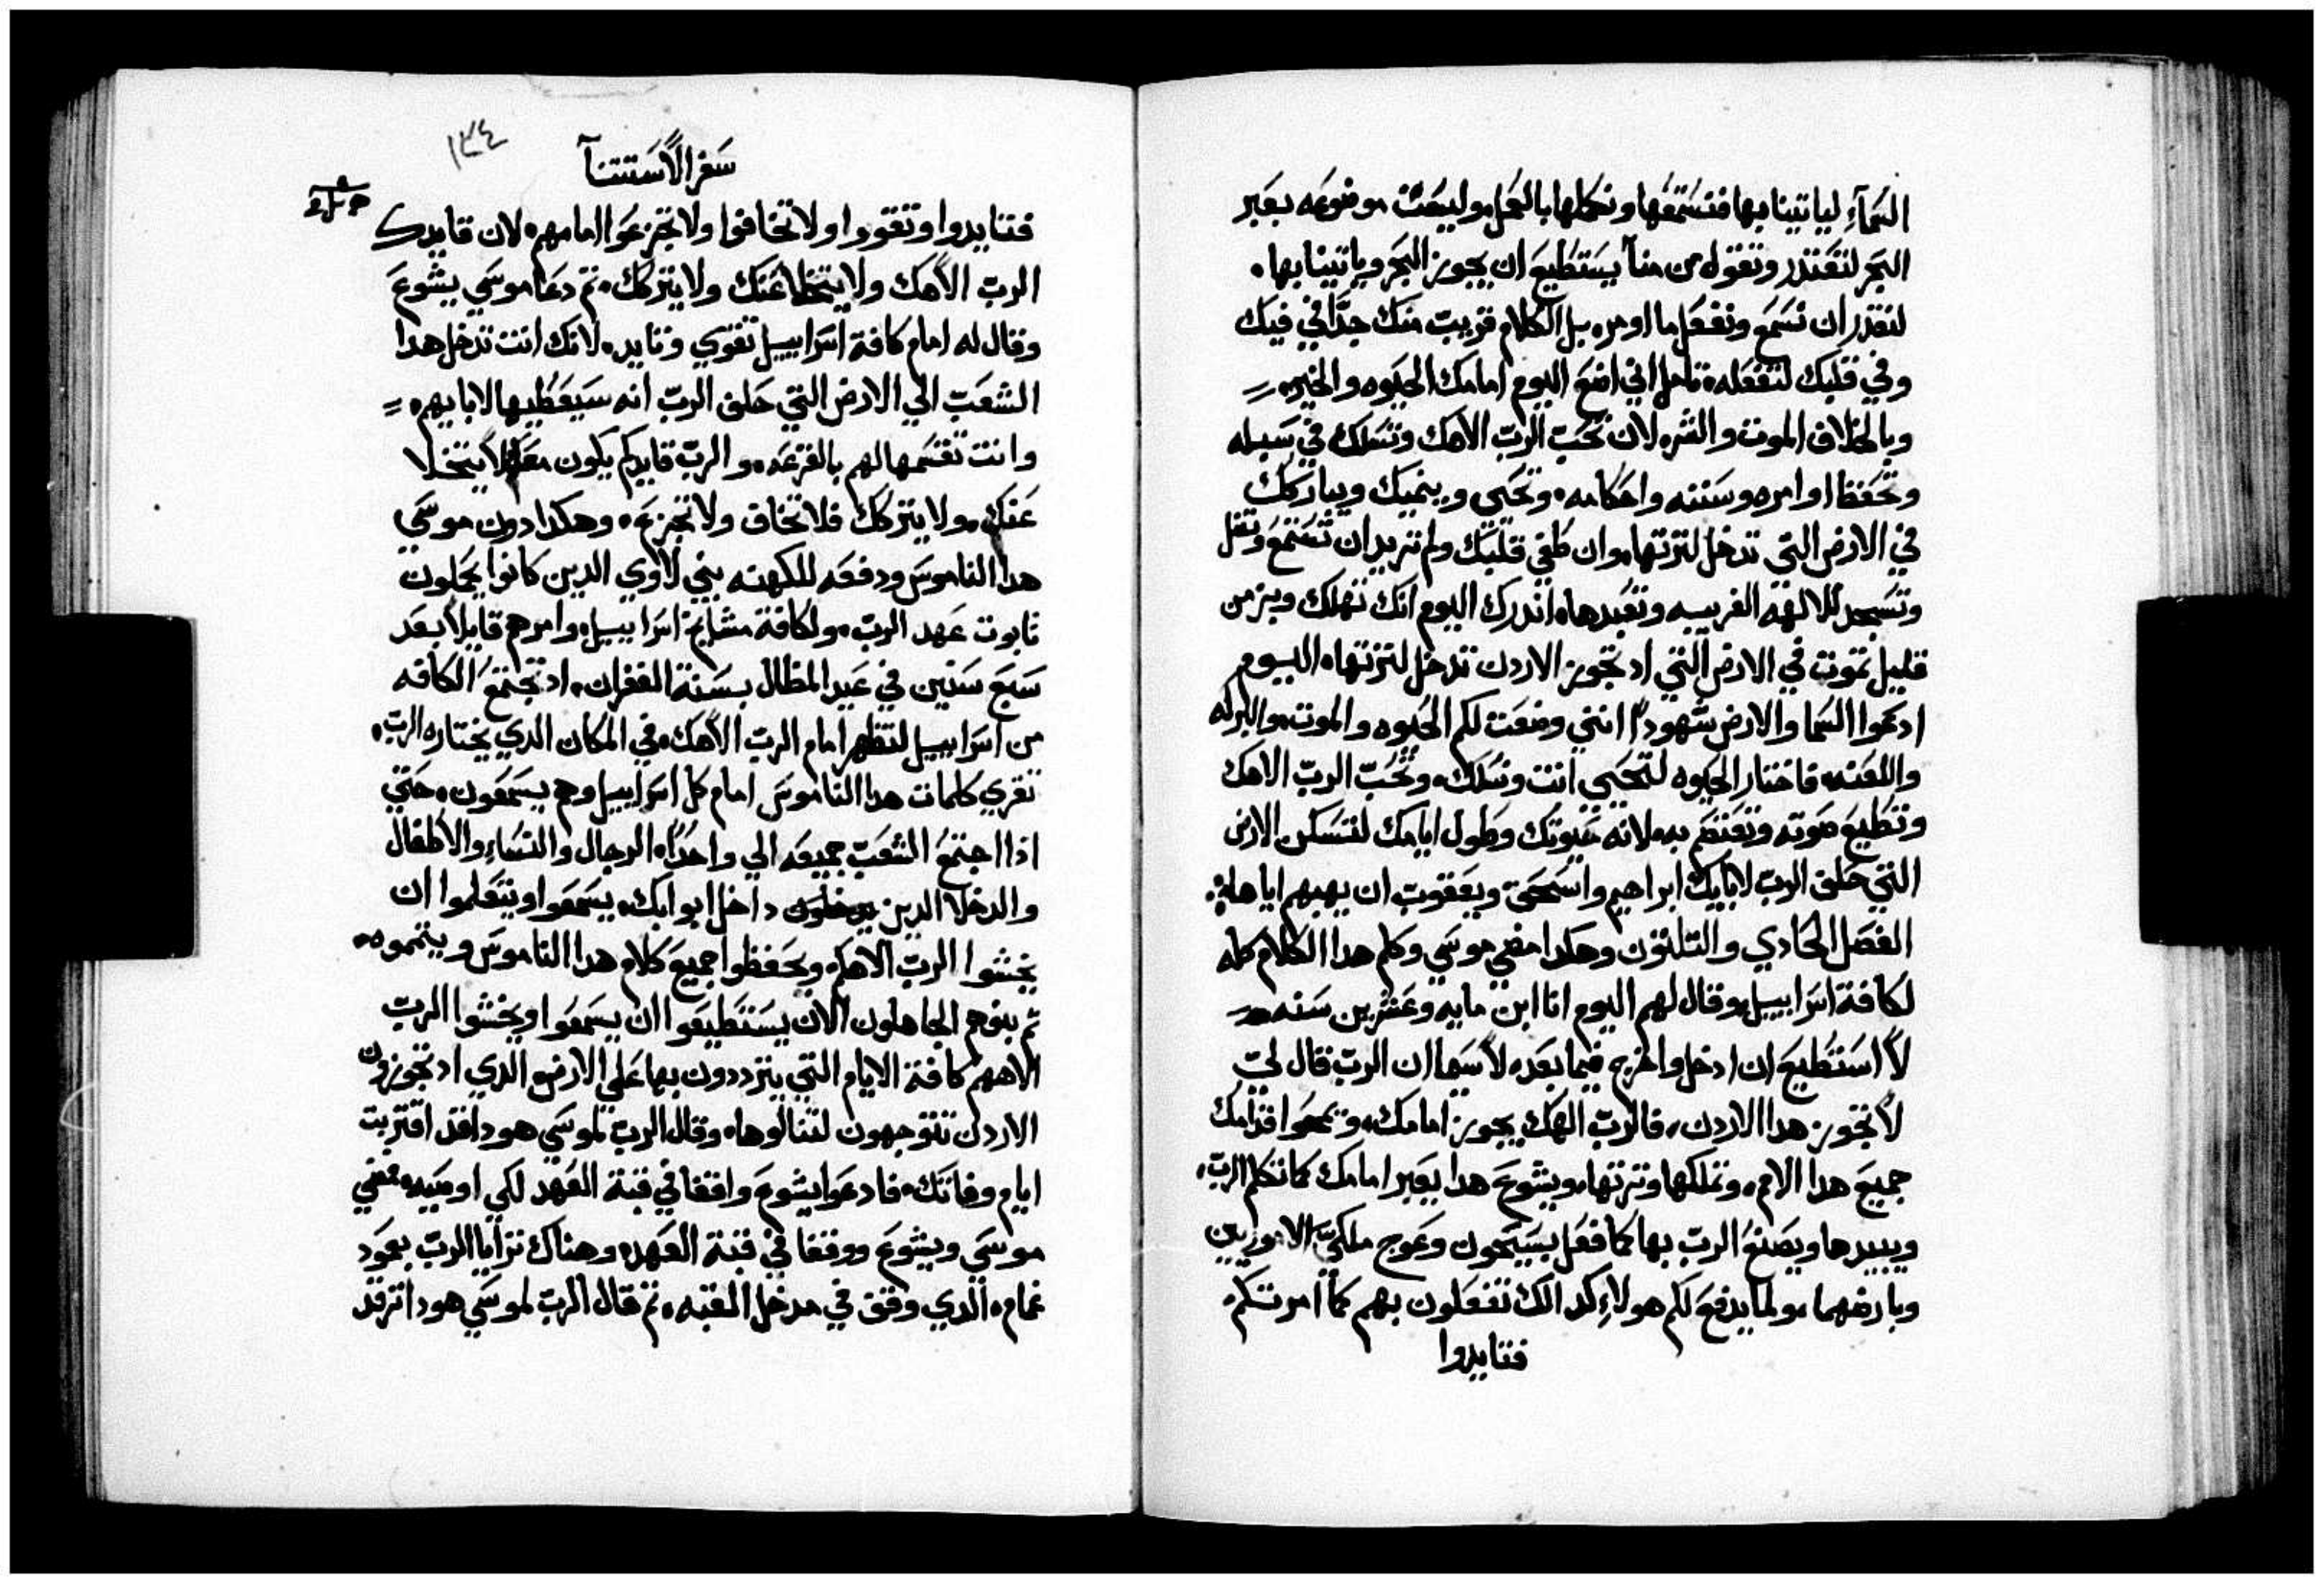 السَمآءِ لياتينا بها فنسَتمعَها ونكملها بالعَمل، وليسَت موضوعَه بعَبر
البَحر لتعَتدر وتقول من منا يسَتطيع ان يجوز البَحر وياتينا بها.
لنقدر ان نسَمع ونفعَل ما اومر، بل الكلام قريب منك جدًا في فيك
وفي قلبك لتفعَله، تامل اني اضع اليوم امامك الحيوه والخير،
وبالخلاف الموت والشر، لان تحَبّ الربّ الاهك وتسَلك في سَبله
وتحَفظ اوامره وسَننه واحكامه، وتحَيي وينميك ويباركك
في الارض التي تدخل لترتها، وان طغي قلبك ولم تريد ان تسَتمع وتضل
وتسَجد للالهه الغريبه وتعَبدها، اندرك اليوم انك تهلك وبزمن
قليل تموت في الارض التي اد تجوز الاردن تدخل لترتها، اليوم
ادعَوا السَما والارض شهودًا انني وضعَت لكم الحيوه والموت، والبركه
واللعَنه، فاختار الحيوه لتحَيي انت ونسَلك، وتحُبّ الربّ الاهك
وتطيع صَوته وتعَتصَم به، لانه حَيوتك وطول ايامك لتسَكن الارض
التي حَلف الربّ لابايك ابراهيم واسَحَق ويعَقوب ان يهبهم اياها،
الفصَل الحَادي والتلتون وهكدا مضي موسَي وكلم هدا الكلام كله
لكافة اسَراييل، وقال لهم اليوم انا ابن مايه وعَشرين سَنه
لا اسَتطيع ان ادخل واخرج فيما بعَد، لاسَيما ان الربّ قال لي
لا تجوز هدا الاردن، فالربّ الهك يجوز امامك، ويمحَوا قدامك
جميعَ هدا الامم، وتملكها وترتها، ويشوعَ هدا يعَبر امامك كما تكلم الربّ،
ويبيدها ويصَنع الربّ بها كما فعَل بسَيحَون وعَوج ملكيّ الاموريين
وبارضهما، ولما يدفع لكم هولاءِ كدالك تفعَلون بهم كما امرتكم.
فتايدوا
١٣٤
سَفر الاسَتتنآ
فتايدوا وتقووا ولا تخافوا ولا تجزعَوا امامهم، لان قايدك
الربّ الاهك ولا يتخلا عَنك ولا يتركك، تم دعَا موسَي يشوعَ
وقال له امام كافة اسَراييل تقوي وتايد، لانك انت تدخل هدا
الشعَبّ الي الارض التي حَلف الربّ انه سَيعَطيها لابايهم،
وانت تقسَمها لهم بالقرعَه، والربّ قايدكم يكون معَك لا يتخلا
عَنك، ولا يتركك فلا تخاف ولا تجزعَ، وهكدا دون موسَي
هدا الناموسَ ودفعَه للكهنه بني لاوي الدين كانوا يحَملون
تابوت عَهد الربّ، ولكافة مشايخ اسَراييل، وامرهم قايلاً بعَد
سَبعَ سَنين في عَيد المظال بسَنة الغفران، اد تجتمعُ الكافه
من اسَراييل لتظهر امام الربّ الاهك، في المكان الدي يختاره الربّ،
تقري كلمات هدا الناموسَ امام كل اسَراييل وهم يسَمعَون، حَتي
اذا اجتمعُ الشعَبّ جميعَه الي واحَدًا، الرجال والنسَاءِ والاطفال
والدخلا الدين داخل ابوابك، يسَمعَوا ويتعَلموا ان
يخشوا الربّ الاهكم ويحَفظوا جميعَ كلام هدا الناموسَ ويتمموه،
تم بنوهم الجاهلون الان يسَتطيعَوا ان يسَمعَوا ويخشوا الربّ
الاههم كافة الايام التي يترددون بها عَلي الارض، الدي اد تجوزون
الاردن تتوجهون لتنالوها، وقال الربّ لموسَي هودا قد اقتربت
ايام وفاتك، فادعَوا يشوعَ واقفا في قبة العَهد لكي اوصَيه، فمضي
موسَي ويشوعَ ووقفا في قبة العَهد، وهناك ترايا الربّ بعَمود
غمام، الدي وقف في مدخل القبه، تم قال الربّ لموسَي هودا ترقد